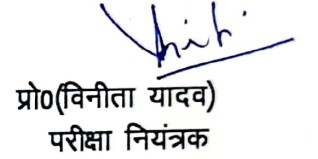 प्रो0(विनीता यादव)
परीक्षा नियंत्रक